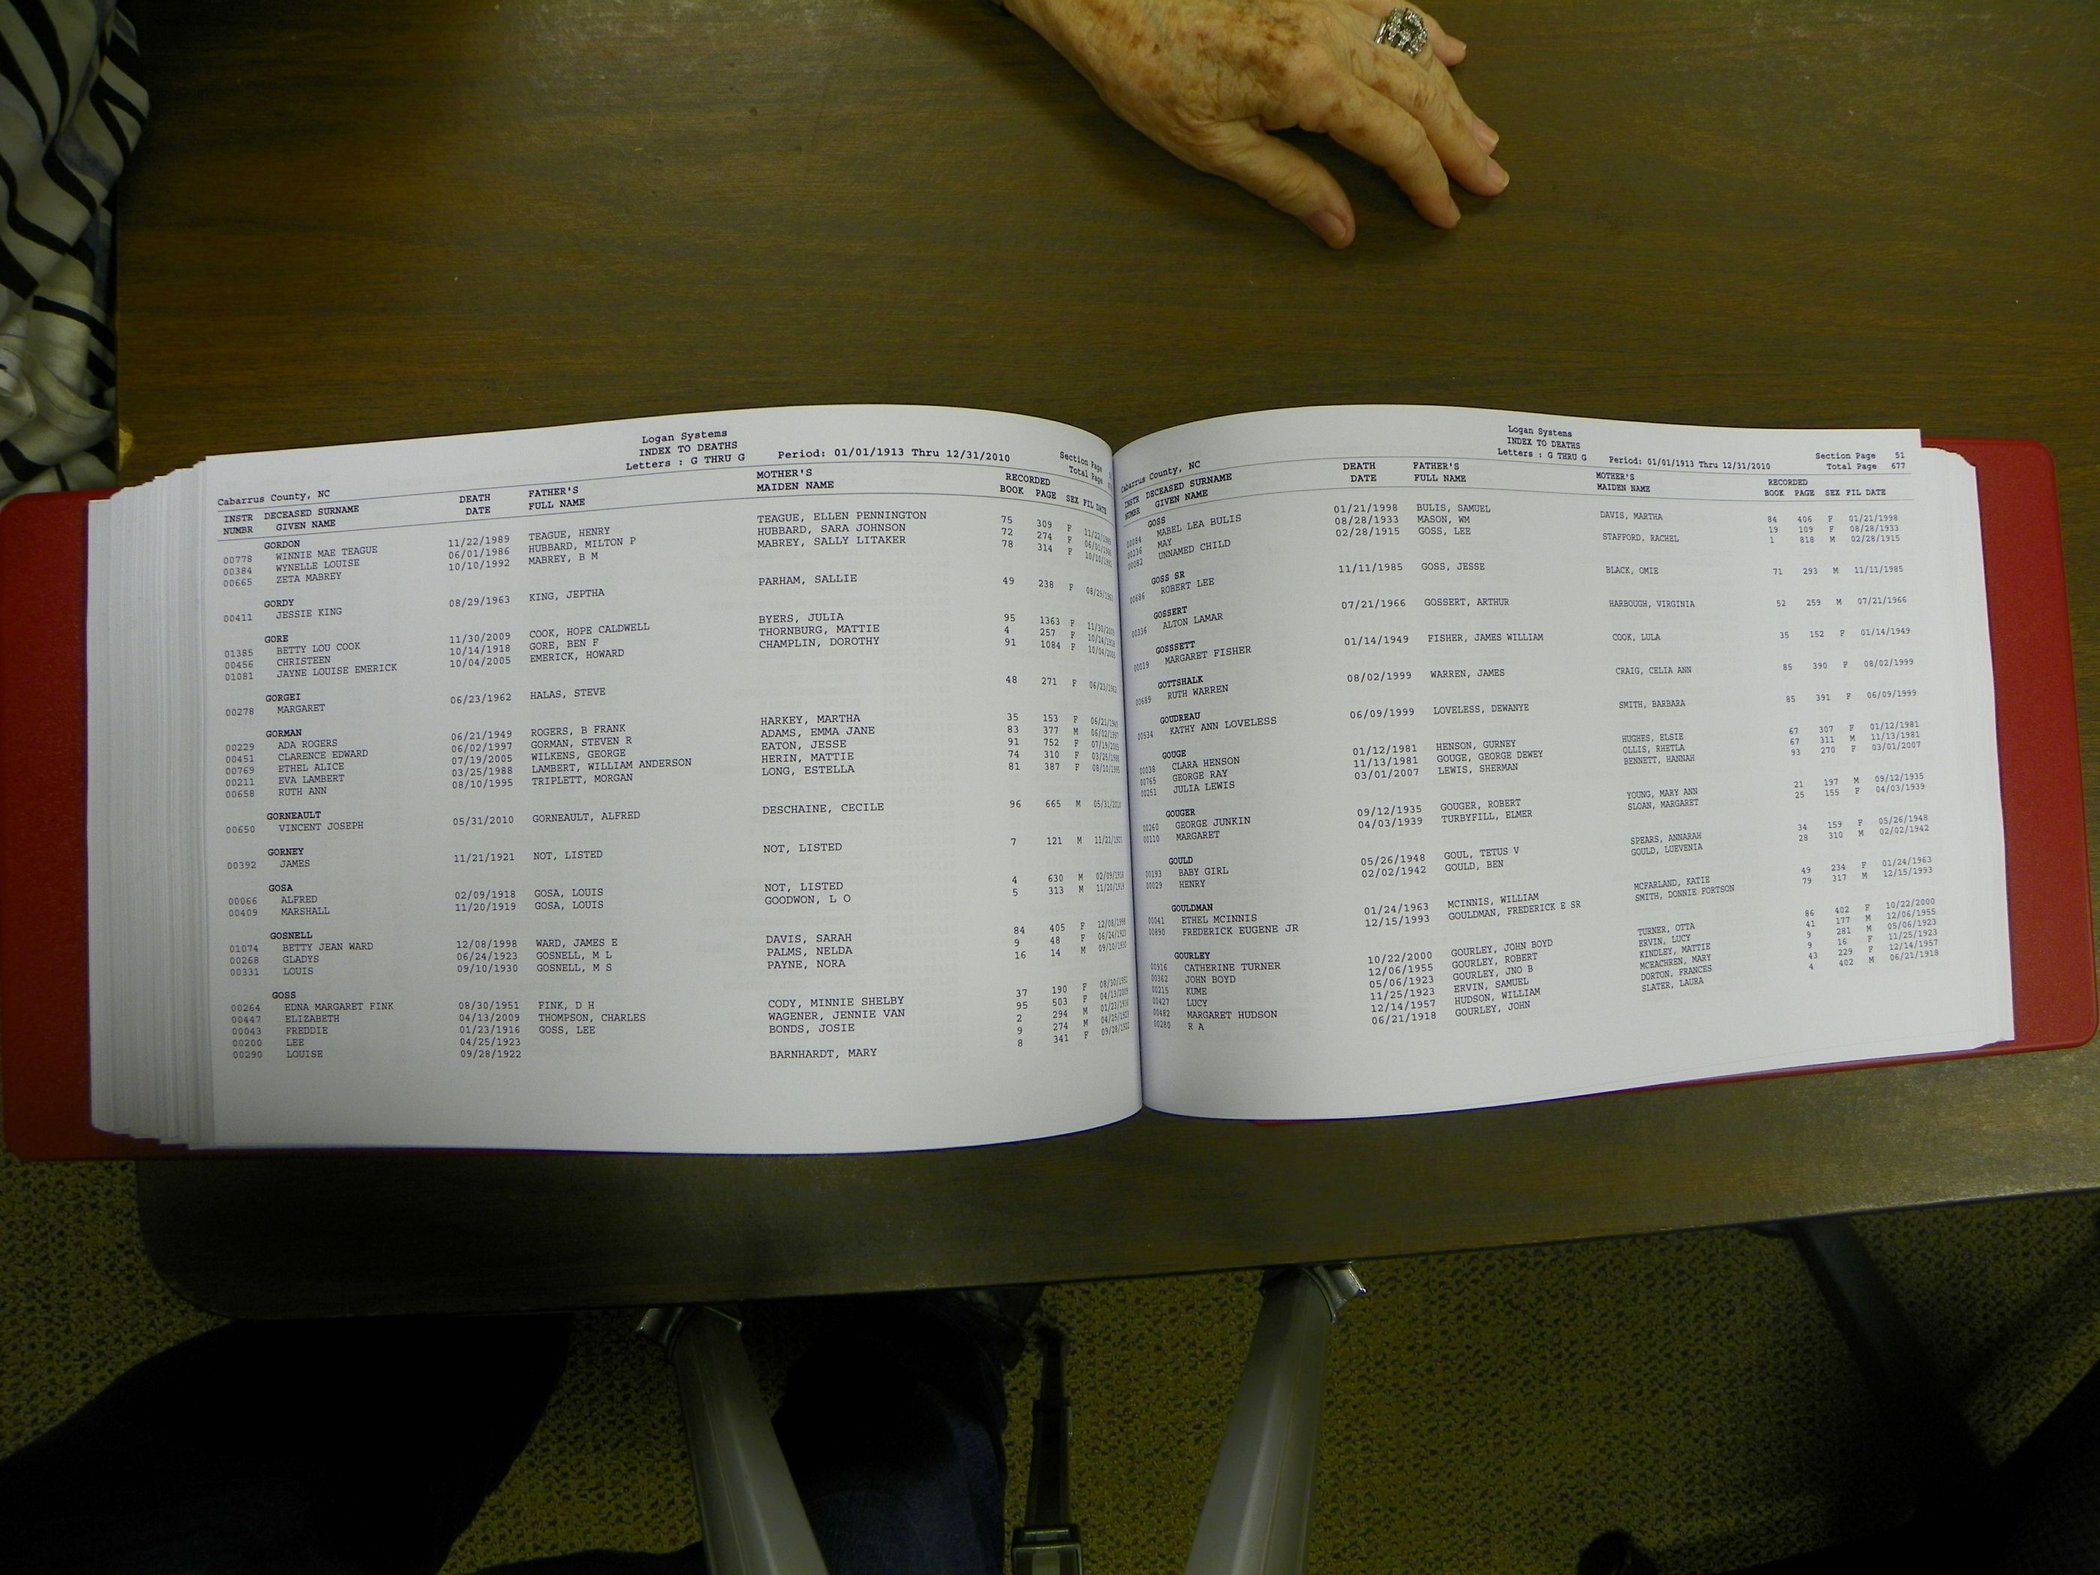 Logan Systems
INDEX TO DEATHS
Letters : G THRU G Period: 01/01/1913 Thru 12/31/2010
Cabarrus County, NC
Section Page
Total Page
INSTR DECEASED SURNAME DEATH FATHER'S MOTHER'S RECORDED
NUMBR GIVEN NAME DATE FULL NAME MAIDEN NAME BOOK PAGE SEX FIL DATE
GORDON
00778 WINNIE MAE TEAGUE 11/22/1989 TEAGUE, HENRY TEAGUE, ELLEN PENNINGTON 75 309 F 11/22/1989
00384 WYNELLE LOUISE 06/01/1986 HUBBARD, MILTON P HUBBARD, SARA JOHNSON 72 274 F 06/01/1986
00665 ZETA MABREY 10/10/1992 MABREY, B M MABREY, SALLY LITAKER 78 314 F 10/10/1992
GORDY
00411 JESSIE KING 08/29/1963 KING, JEPTHA PARHAM, SALLIE 49 238 F 08/29/1963
GORE
01385 BETTY LOU COOK 11/30/2009 COOK, HOPE CALDWELL BYERS, JULIA 95 1363 F 11/30/2009
00456 CHRISTEEN 10/14/1918 GORE, BEN F THORNBURG, MATTIE 4 257 F 10/14/1918
01081 JAYNE LOUISE EMERICK 10/04/2005 EMERICK, HOWARD CHAMPLIN, DOROTHY 91 1084 F 10/04/2005
GORGEI
00278 MARGARET 06/23/1962 HALAS, STEVE 48 271 F 06/23/1962
GORMAN
00229 ADA ROGERS 06/21/1949 ROGERS, B FRANK HARKEY, MARTHA 35 153 F 06/21/1949
00451 CLARENCE EDWARD 06/02/1997 GORMAN, STEVEN R ADAMS, EMMA JANE 83 377 M 06/02/1997
00769 ETHEL ALICE 07/19/2005 WILKENS, GEORGE EATON, JESSE 91 752 F 07/19/2005
00211 EVA LAMBERT 03/25/1988 LAMBERT, WILLIAM ANDERSON HERIN, MATTIE 74 310 F 03/25/1988
00658 RUTH ANN 08/10/1995 TRIPLETT, MORGAN LONG, ESTELLA 81 387 F 08/10/1995
GORNEAULT
00650 VINCENT JOSEPH 05/31/2010 GORNEAULT, ALFRED DESCHAINE, CECILE 96 665 M 05/31/2010
GORNEY
00392 JAMES 11/21/1921 NOT, LISTED NOT, LISTED 7 121 M 11/21/1921
GOSA
00066 ALFRED 02/09/1918 GOSA, LOUIS NOT, LISTED 4 630 M 02/09/1918
00409 MARSHALL 11/20/1919 GOSA, LOUIS GOODWON, L O 5 313 M 11/20/1919
GOSNELL
01074 BETTY JEAN WARD 12/08/1998 WARD, JAMES E DAVIS, SARAH 84 405 F 12/08/1998
00268 GLADYS 06/24/1923 GOSNELL, M L PALMS, NELDA 9 48 F 06/24/1923
00331 LOUIS 09/10/1930 GOSNELL, M S PAYNE, NORA 16 14 M 09/10/1930
GOSS
00264 EDNA MARGARET FINK 08/30/1951 FINK, D H CODY, MINNIE SHELBY 37 190 F 08/30/1951
00447 ELIZABETH 04/13/2009 THOMPSON, CHARLES WAGENER, JENNIE VAN 95 503 F 04/13/2009
00043 FREDDIE 01/23/1916 GOSS, LEE BONDS, JOSIE 2 294 M 01/23/1916
00200 LEE 04/25/1923 9 274 M 04/25/1923
00290 LOUISE 09/28/1922 BARNHARDT, MARY 8 341 F 09/28/1922
Logan Systems
INDEX TO DEATHS
Letters : G THRU G Period: 01/01/1913 Thru 12/31/2010
Cabarrus County, NC
Section Page 51
Total Page 677
INSTR DECEASED SURNAME DEATH FATHER'S MOTHER'S RECORDED
NUMBR GIVEN NAME DATE FULL NAME MAIDEN NAME BOOK PAGE SEX FIL DATE
GOSS
00084 MABEL LEA BULIS 01/21/1998 BULIS, SAMUEL DAVIS, MARTHA 84 406 F 01/21/1998
00236 MAY 08/28/1933 MASON, WM 19 109 F 08/28/1933
00082 UNNAMED CHILD 02/28/1915 GOSS, LEE STAFFORD, RACHEL 1 818 M 02/28/1915
GOSS SR
00686 ROBERT LEE 11/11/1985 GOSS, JESSE BLACK, OMIE 71 293 M 11/11/1985
GOSSERT
00336 ALTON LAMAR 07/21/1966 GOSSERT, ARTHUR HARBOUGH, VIRGINIA 52 259 M 07/21/1966
GOSSSETT
00019 MARGARET FISHER 01/14/1949 FISHER, JAMES WILLIAM COOK, LULA 35 152 F 01/14/1949
GOTTSHALK
00689 RUTH WARREN 08/02/1999 WARREN, JAMES CRAIG, CELIA ANN 85 390 F 08/02/1999
GOUDREAU
00534 KATHY ANN LOVELESS 06/09/1999 LOVELESS, DEWANYE SMITH, BARBARA 85 391 F 06/09/1999
GOUGE
00038 CLARA HENSON 01/12/1981 HENSON, GURNEY HUGHES, ELSIE 67 307 F 01/12/1981
00765 GEORGE RAY 11/13/1981 GOUGE, GEORGE DEWEY OLLIS, RHETLA 67 311 M 11/13/1981
00251 JULIA LEWIS 03/01/2007 LEWIS, SHERMAN BENNETT, HANNAH 93 270 F 03/01/2007
GOUGER
00260 GEORGE JUNKIN 09/12/1935 GOUGER, ROBERT YOUNG, MARY ANN 21 197 M 09/12/1935
00110 MARGARET 04/03/1939 TURBYFILL, ELMER SLOAN, MARGARET 25 155 F 04/03/1939
GOULD
00193 BABY GIRL 05/26/1948 GOUL, TETUS V SPEARS, ANNARAH 34 159 F 05/26/1948
00029 HENRY 02/02/1942 GOULD, BEN GOULD, LUEVENIA 28 310 M 02/02/1942
GOULDMAN
00041 ETHEL MCINNIS 01/24/1963 MCINNIS, WILLIAM MCFARLAND, KATIE 49 234 F 01/24/1963
00890 FREDERICK EUGENE JR 12/15/1993 GOULDMAN, FREDERICK E SR SMITH, DONNIE FORTSON 79 317 M 12/15/1993
GOURLEY
00916 CATHERINE TURNER 10/22/2000 GOURLEY, JOHN BOYD TURNER, OTTA 86 402 F 10/22/2000
00362 JOHN BOYD 12/06/1955 GOURLEY, ROBERT ERVIN, LUCY 41 177 M 12/06/1955
00215 KUME 05/06/1923 GOURLEY, JNO B KINDLEY, MATTIE 9 281 M 05/06/1923
00427 LUCY 11/25/1923 ERVIN, SAMUEL MCEACHREN, MARY 9 16 F 11/25/1923
00482 MARGARET HUDSON 12/14/1957 HUDSON, WILLIAM DORTON, FRANCES 43 229 F 12/14/1957
00280 R A 06/21/1918 GOURLEY, JOHN SLATER, LAURA 4 402 M 06/21/1918